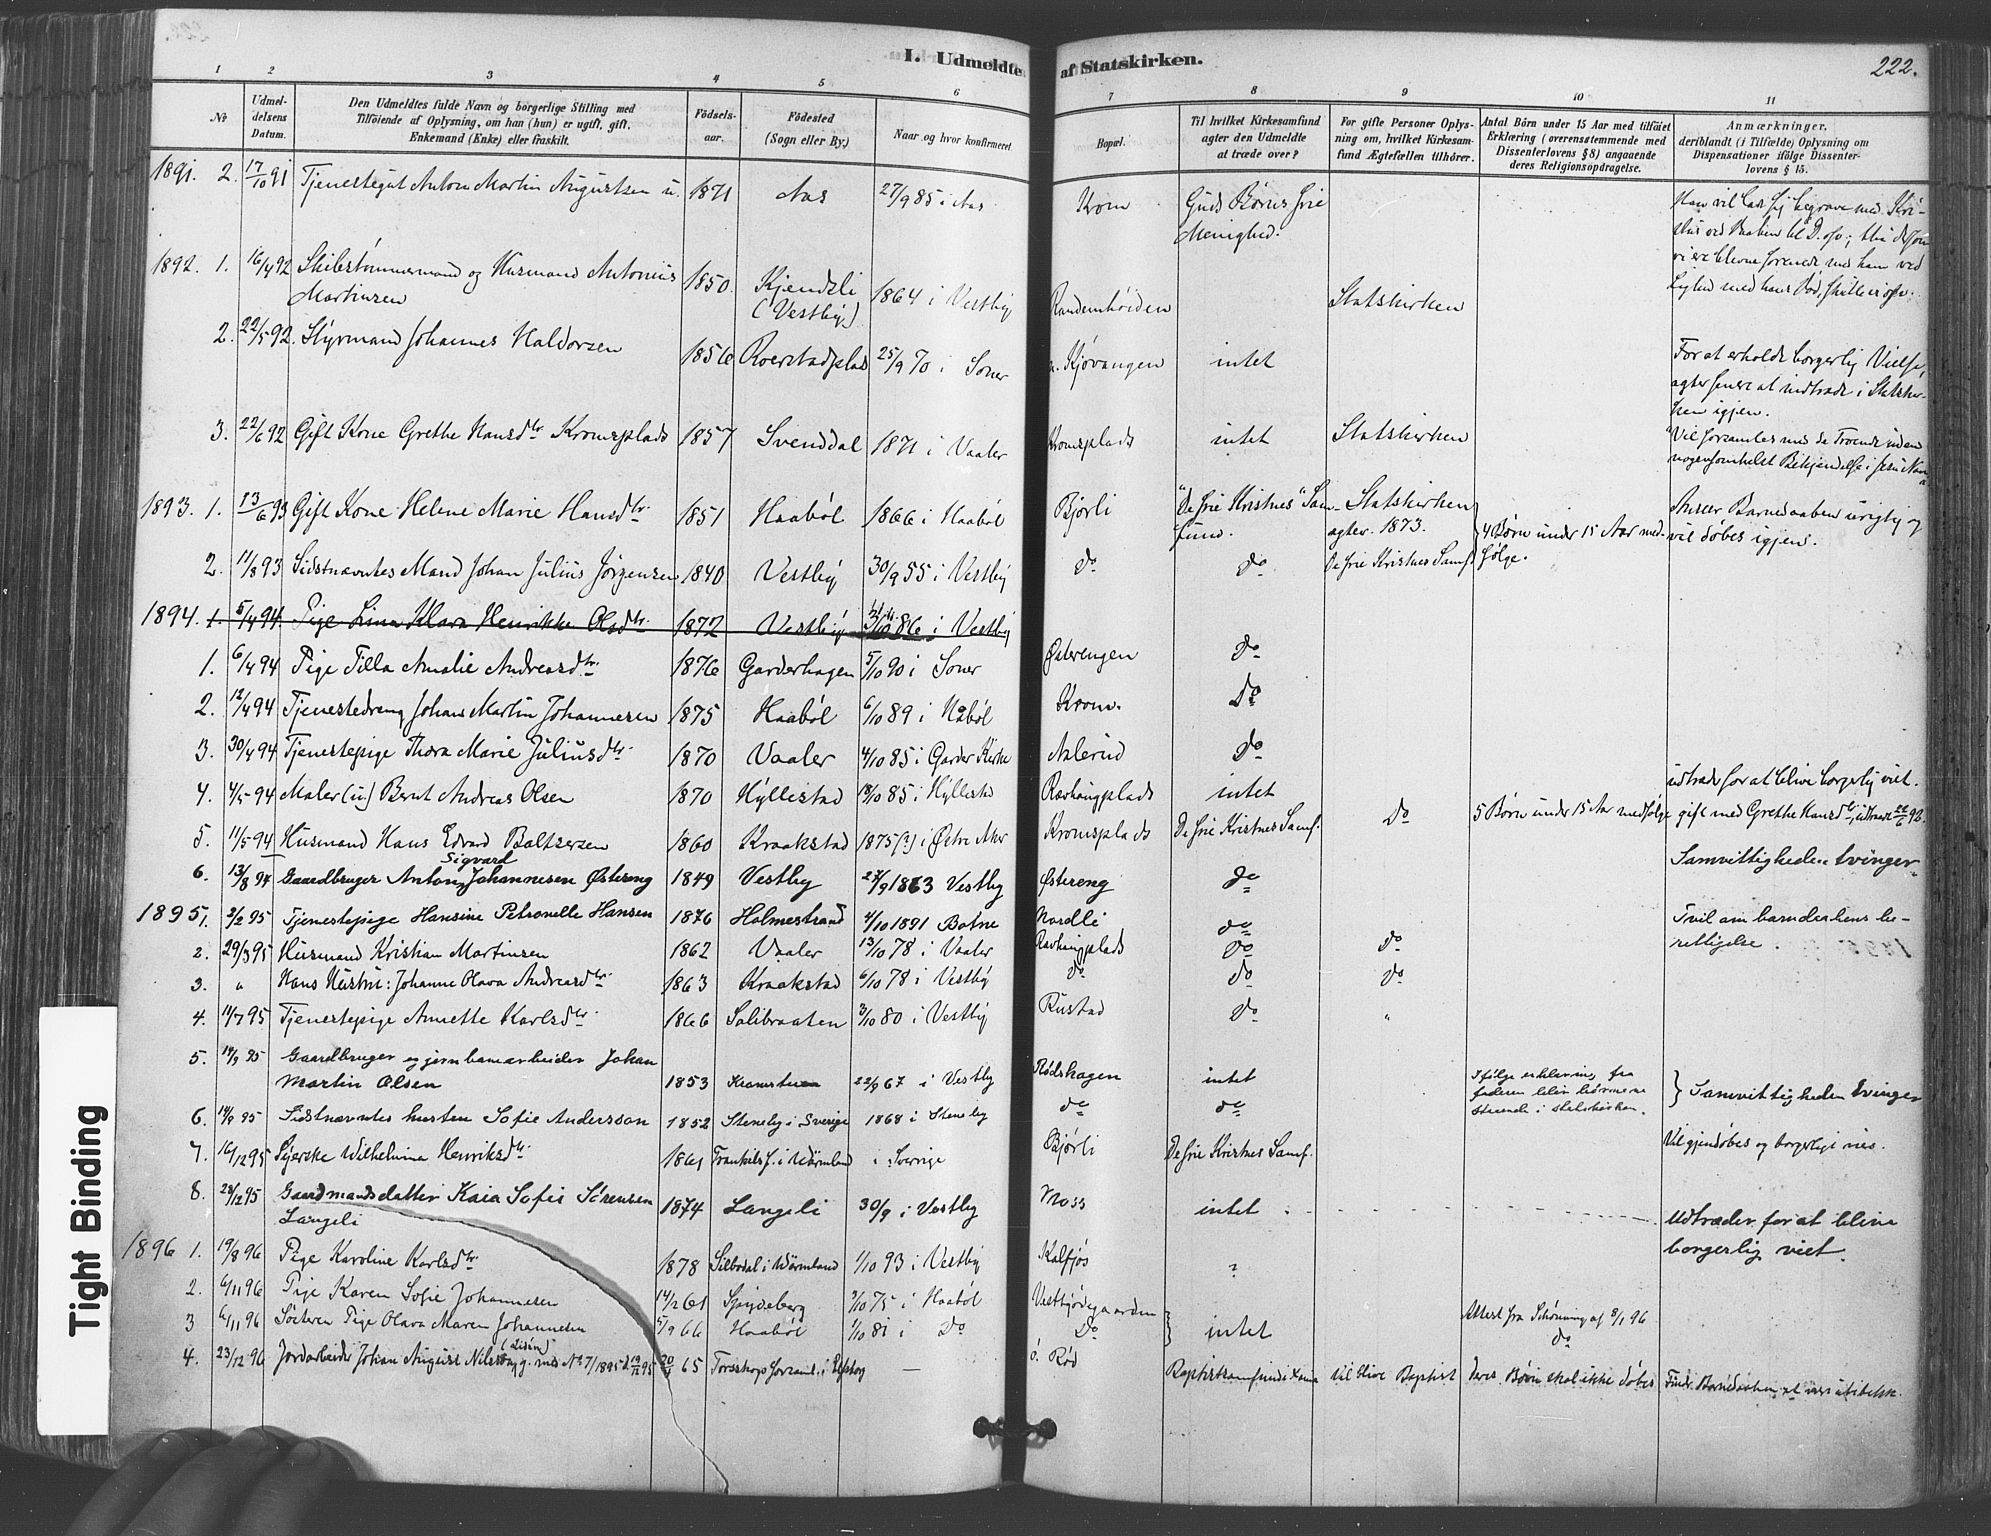 I. Udmeldte af Statskirken.
222.
1 2 3 4 5 6 7 8 9 10 11
No
Udmel-
delsens
Datum.
Den Udmeldtes fulde Navn og borgerlige Stilling med
Tilføiende af Oplysning, om han (hun) er ugift, gift,
Enkemand (Enke) eller fraskilt.
Fødsels-
aar.
Fødested
(Sogn eller By.)
Naar og hvor konfirmeret
Bopæl.
Til hvilket Kirkesamfund
agter den Udmeldte
at træde over?
For gifte Personer Oplys-
ning om, hvilket Kirkesam-
fund Ægtefællen tilhører.
Antal Børn under 15 Aar med tilføiet
Erklæring (overensstemmende med
Dissenterlovens §8) angaaende
deres Religionsopdragelse.
Anmærkninger,
deriblandt (i Tilfælde) Oplysning om
Dispensationer ifølge Dissenter-
lovens § 15.
1891. 2. 17/10 91 Tjenestegut Anton Martin Augustsen u. 1871 Aas 27/9 85 i Aas Krom Guds Børns frie
Menighed.
1892. 1. 16/4 92 Skibstømmermand og Husmand Antonius 1850. Kjendsli 1864 i Vestby Randemhøiden Statskirken
Martinsen (Vestby)
2. 22/5 92. Styrmand Johannes Haldorsen 1856 Roerstadplads 25/9 70 i Soner Kjøvangen intet For at erholde borgerlig Vielse,
agter senere at indtræde i Statskir-
ken igjen.
3. 22/6 92 Gift Kone Grethe Hansdtr Kromsplads 1857 Svenddal 1871 i Vaaler Kromsplads intet Statskirken Vil forsamles med de Troende uden
nogensomhelst Bekjendelse i Jesu Navn
1893. 1. 13/6 93 Gift Kone Helene Marie Hansdtr 1851 Haabøl 1866 i Haabøl Bjørli "De frie Kristnes" Sam- Statskirken
fund. agter. 1873. 4 Børn under 15 Aar med- Anser Barnedaaben urigtig og
vil døbes igjen.
2. 11/8 93 Sidstnævntes Mand Johan Julius Jørgensen 1840 Vestby 30/9 55 i Vestby do do De frie Kristnes Samf. følge.
1894. 1. 5/4 94 Pige Lina Klara Henrikke Olsdtr 1872 Vestby 3/10 86 i Vestby
1. 6/4 94 Pige Tilla Amalie Andreasdtr 1876 Garderhagen 5/10 90 i Soner Østerengen do
2. 12/4 94 Tjenestedreng Johan Martin Johannesen 1875 Haabøl 6/10 89 i Håbøl Krom. Do
3. 30/4 94 Tjenestepige Thora Marie Juliusdtr 1870 Vaaler 4/10 85 i Garder Kirke Aslerud do
4. 4/5 94 Maler (u) Bernt Andreas Olsen 1870 Hyllestad 18/10 85 i Hyllestad Ravhaugplads intet udtræder for at blive borgerlig viet.
5. 11/5 94 Husmand Hans Edvard Baltsersen 1860 Kraakstad 1875 (?) i Østre Aker Kromsplads De frie Kristnes Samf. Do 5 Børn under 15 Aar medfølge gift med Grethe Hansdtr, udtraadt 22/6 92.
6. 13/8 94 Gaardbruger Anton Sigvard Johannesen Østereng 1849 Vestby 27/9 1863 Vestby Østereng do Samvittigheden tvinger
1895 1. 2/2 95 Tjenestepige Hansine Petronelle Hansen 1876 Holmestrand 4/10 1891 Botne Nordli do Tvil om barnedaabens be-
rettigelse.
2. 29/3 95 Husmand Kristian Martinsen 1862 Vaaler 13/10 78 i Vaaler Ravhaugplads do do
3. " Hans Hustru: Johanne Olava Andreasdtr 1863 Kraakstad 6/10 78 i Vestby do do do
4. 14/7 95 Tjenestepige Annette Karlsdtr 1866 Solibraaten 3/10 80 i Vestby Rustad do "
5. 14/9 95 Gaardbruger og jernbanearbeider Johan
Martin Olsen 1853 22/9 67 i Vestby Rødshagen intet Ifølge erklæring fra
faderen blir børnene
staaende i statskirken. Samvittigheden tvinger
6. 14/9 95 Sidstnævntes hustru Sofie Andersson 1852 Steneby i Sverige 1868 i Steneby do do
7. 16/12 95 Syerske Wilhelmine Henriksdtr. 1861 i Wärmland i Sverige Bjørli De frie Kristnes Samf. Vil gjendøbes og borgerlige vies.
8. 28/12 95 Gaardmandsdatter Kaia Sofie Sørensen 1874 Langeli 30/9 i Vestby Moss intet Udtræder for at blive
Langeli borgerlig viet.
1896 1. 19/8 96 Pige Karoline Karlsdtr 1878 Silbodal i Wärmland 1/10 93 i Vestby Kalfjøs ?
2. 6/11 96 Pige Karen Sofie Johannesen 14/2 61 Spydeberg 3/10 75 i Haabøl Vestbyødegaarden intet Attest fra Schønning af 8/1 96
3 6/11 96 Søsteren Pige Olava Maren Johannesen 5/9 66 Haabøl 1/10 81 i Do Do do
4. 23/12 96 Jordarbeider Johan August Nilsson g. med No 7/1895 65 ø. Rød Baptistsamfundet vil blive Baptist deres Børn skal ikke døbes
Tight Binding